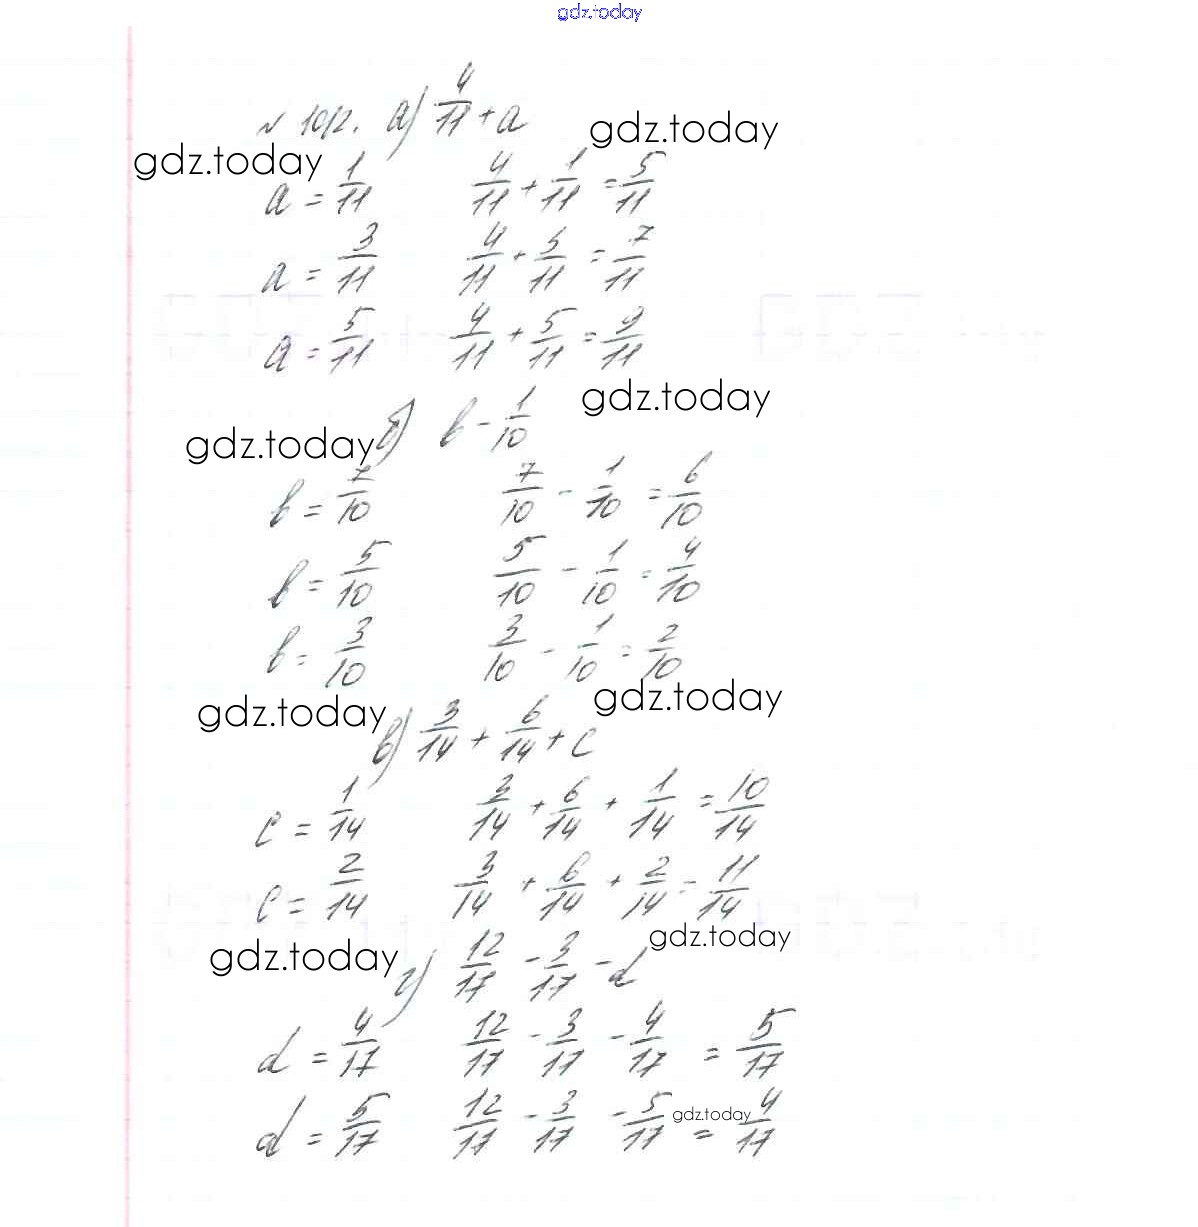 gdz.today
№ 1012. а) 4/11 + a
gdz.today
gdz.today
a = 1/11 4/11 + 1/11 = 5/11
a = 3/11 4/11 + 3/11 = 7/11
a = 5/11 4/11 + 5/11 = 9/11
gdz.today
gdz.today
б) b - 1/10
b = 7/10 7/10 - 1/10 = 6/10
b = 5/10 5/10 - 1/10 = 4/10
b = 3/10 3/10 - 1/10 = 2/10
gdz.today
gdz.today
в) 3/14 + 6/14 + c
c = 1/14 3/14 + 6/14 + 1/14 = 10/14
c = 2/14 3/14 + 6/14 + 2/14 = 11/14
gdz.today
gdz.today
г) 12/17 - 3/17 - d
d = 4/17 12/17 - 3/17 - 4/17 = 5/17
d = 5/17 12/17 - 3/17 - 5/17 = 4/17
gdz.today